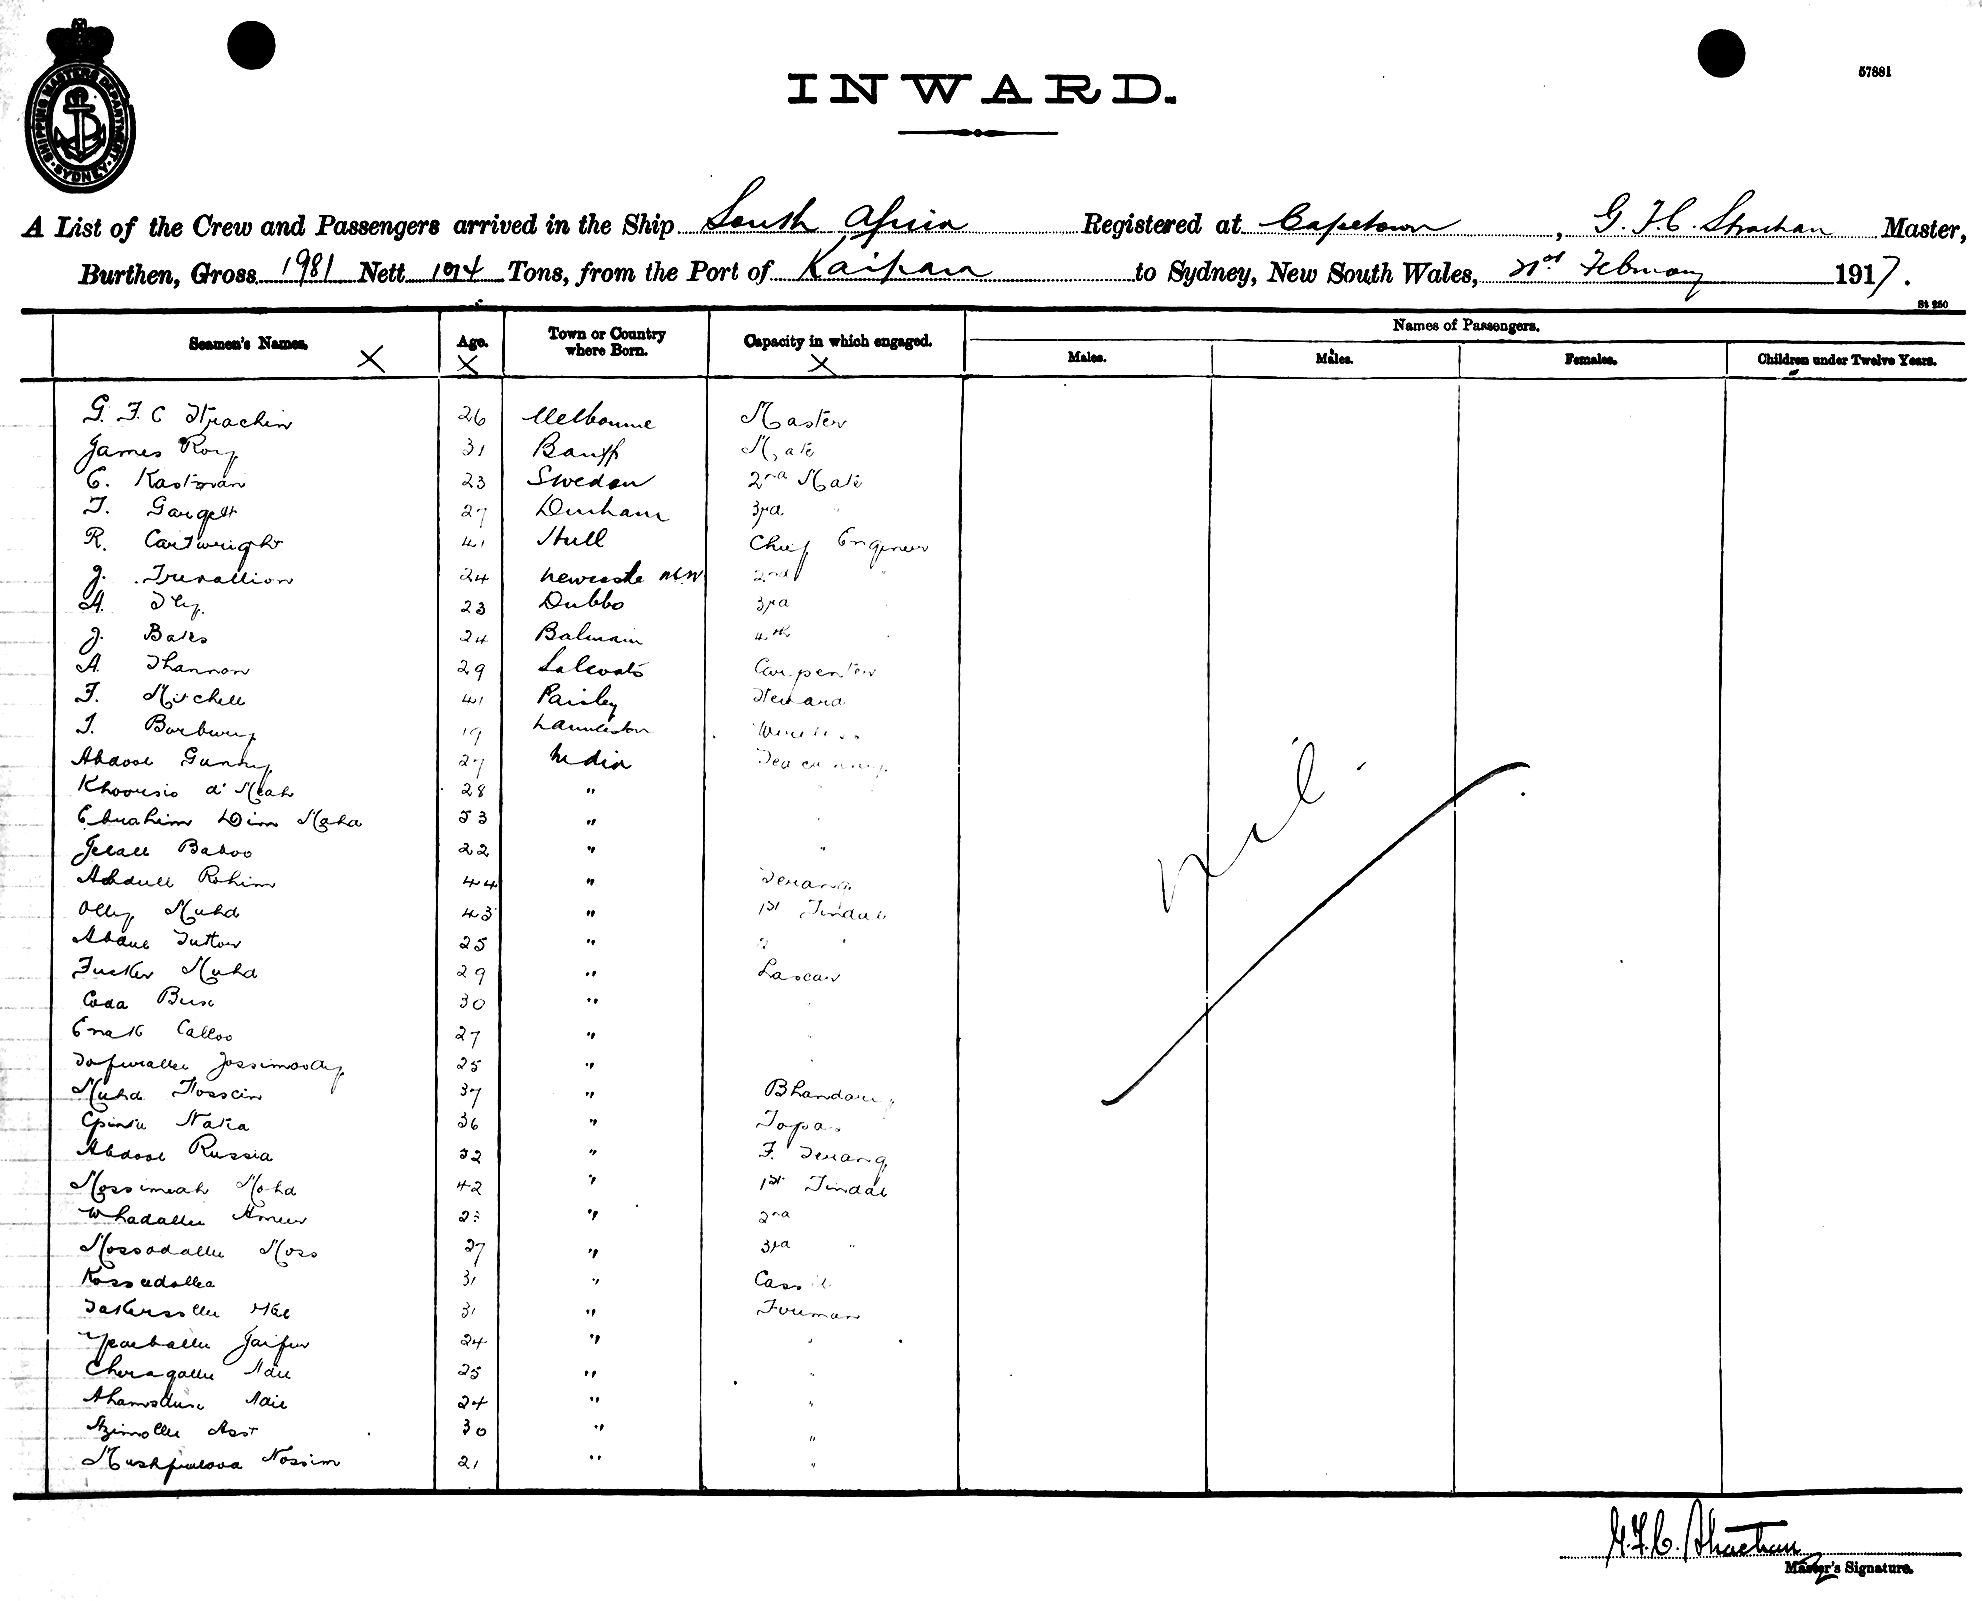 SHIPPING MASTERS DEPARTMENT. SYDNEY
57881
INWARD.
A List of the Crew and Passengers arrived in the Ship South Africa Registered at Capetown, G. F. C. Strachan Master,
Burthen, Gross 1981 Nett 1014 Tons, from the Port of Kaipara to Sydney, New South Wales, 21st February 1917.
St 250
Seamen's Names. Age. Town or Country where Born. Capacity in which engaged. Names of Passengers.
X X X
Males. Males. Females. Children under Twelve Years.
G. F. C Strachan 26 Melbourne Master
James Roy 31 Banff Mate
C. Kastman 23 Sweden 2nd Mate
T. Gargett 27 Durham 3rd "
R. Cartwright 41 Hull Chief Engineer
J. Trevallion 24 Newcastle NSW 2nd "
A. 23 Dubbo 3rd
J. Bates 24 Balmain 4th
A. Shannon 29 Salcoats Carpenter
F. Mitchell 41 Paisley Steward
T. Burbury 19 Launceston Wireless
Abdool Gunny 27 India Seacunny
28 "
Ebrahim Dim Mahd 53 "
Jelall Baboo 22 " "
Abdull Rohim 44 " Serang
Olly Muhd 43 " 1st Tindal
Abdul Suttar 25 " 2 "
Fucker Muhd 29 " Lascar
Coda Bux 30 "
Calloo 27 "
25 "
Muhd Hossein 37 " Bhandary
36 " Topas
Abdool Russia 32 " F. Serang
Mossimeah Mohd 42 " 1st Tindal
Whadallee Ameer 23 " 2nd
Mossadallee Moss 27 " 3rd "
Kossadollea 31 " Cassil
31 " Fireman
Jaifur 24 " "
Choragallee 25 " "
24 " "
Azimollee 30 " "
Nossim 21 " "
Nil
G. F. C. Strachan
Master's Signature.